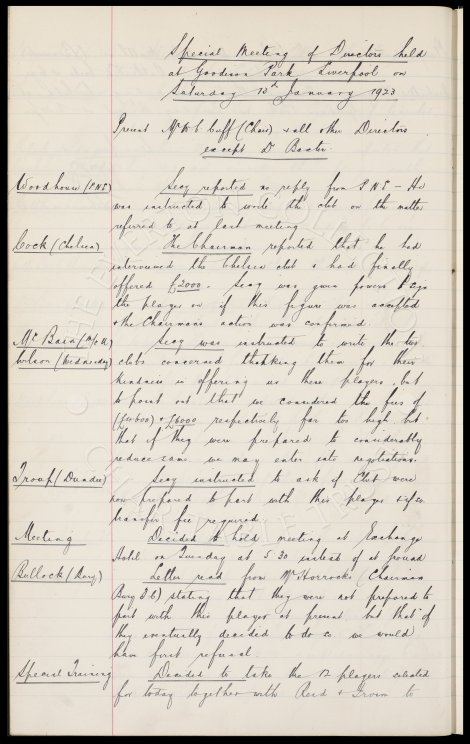 Special Meeting of Directors held
at Goodison Park Liverpool on
Saturday 13th January 1923
Present Mr W C Cuff (Chair) & all other Directors
except Dr Baxter.
Woodhouse (P.N.E) Secy reported no reply from P N E - He
was instructed to write the club on the matter
referred to at last meeting
Cock (Chelsea) The Chairman reported that he had
interviewed the Chelsea club & had finally
offered £2000. Secy was given powers to sign
the player on if this figure was accepted
& the Chairman's action was confirmed.
Mc Bain (M/c U.) Secy was instructed to write the two
Wilson (Wednesday) clubs concerned thanking them for their
kindness in offering us these players, but
to point out that we considered the fees of
& £6000 respectively far too high but
that if they were prepared to considerably
reduce same we may enter into negotiations.
Troup (Dundee) Secy instructed to ask if Club were
now prepared to part with this player & if so
transfer fee required
Meeting Decided to hold meeting at Exchange
Hotel on Tuesday at 5.30 instead of at ground
Bullock (Bury) Letter read from Mr Horrocks (Chairman
Bury F C) stating that they were not prepared to
part with this player at present but that if
they eventually decided to do so we would
have first refusal.
Special Training Decided to take the 12 players selected
for today together with Reid & Irvin to